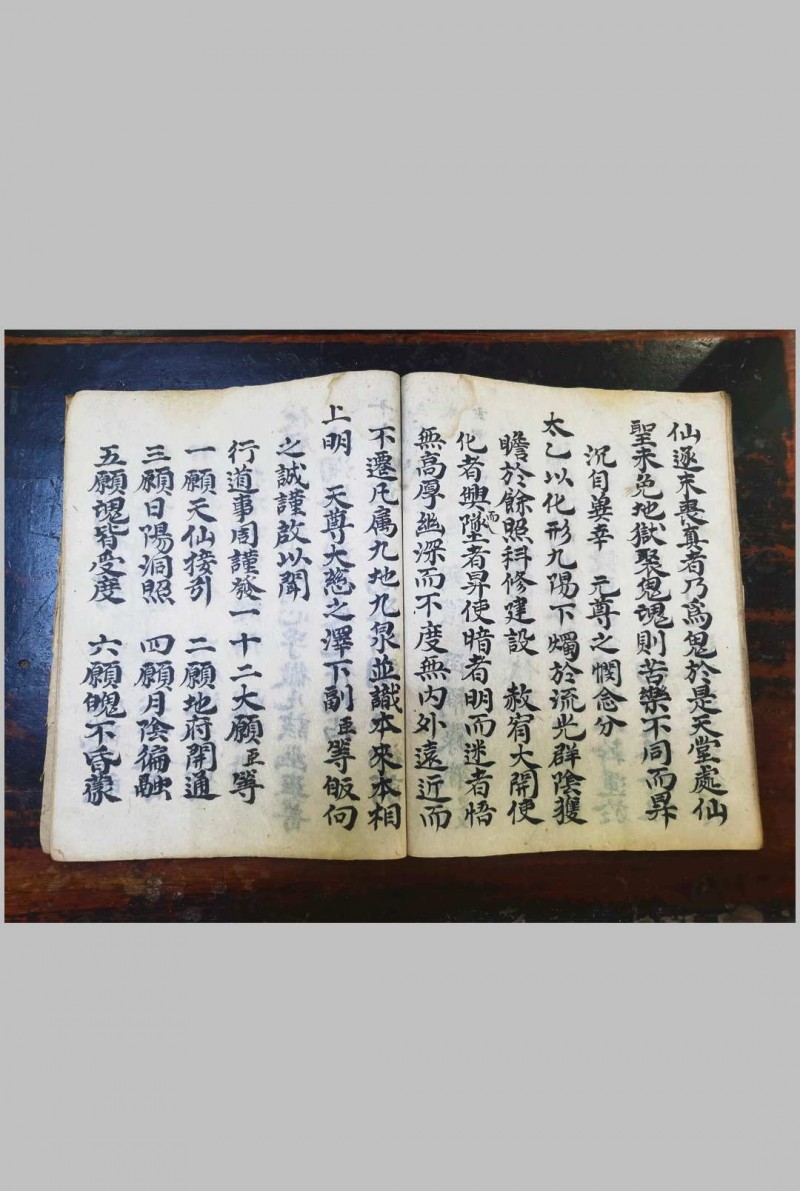 仙逐末喪真者乃為鬼於是天堂處仙
聖未免地獄聚鬼魂則苦樂不同而昇
沉自異幸　元尊之憫念分
太乙以化形九陽下燭於流光群陰獲
瞻於餘照科修建設　赦宥大開使
化者興而墜者昇使暗者明而迷者悟
無高厚幽深而不度無內外遠近而
不遷凢属九地九泉並識本來本相
上明　天尊大慈之澤下副臣等皈向
之誠謹啟以聞
行道事周謹發一十二大願臣等
一願天仙接引　二願地府開通
三願日陽洞照　四願月陰徧融
五願魂皆受度　六願魄不昏蒙